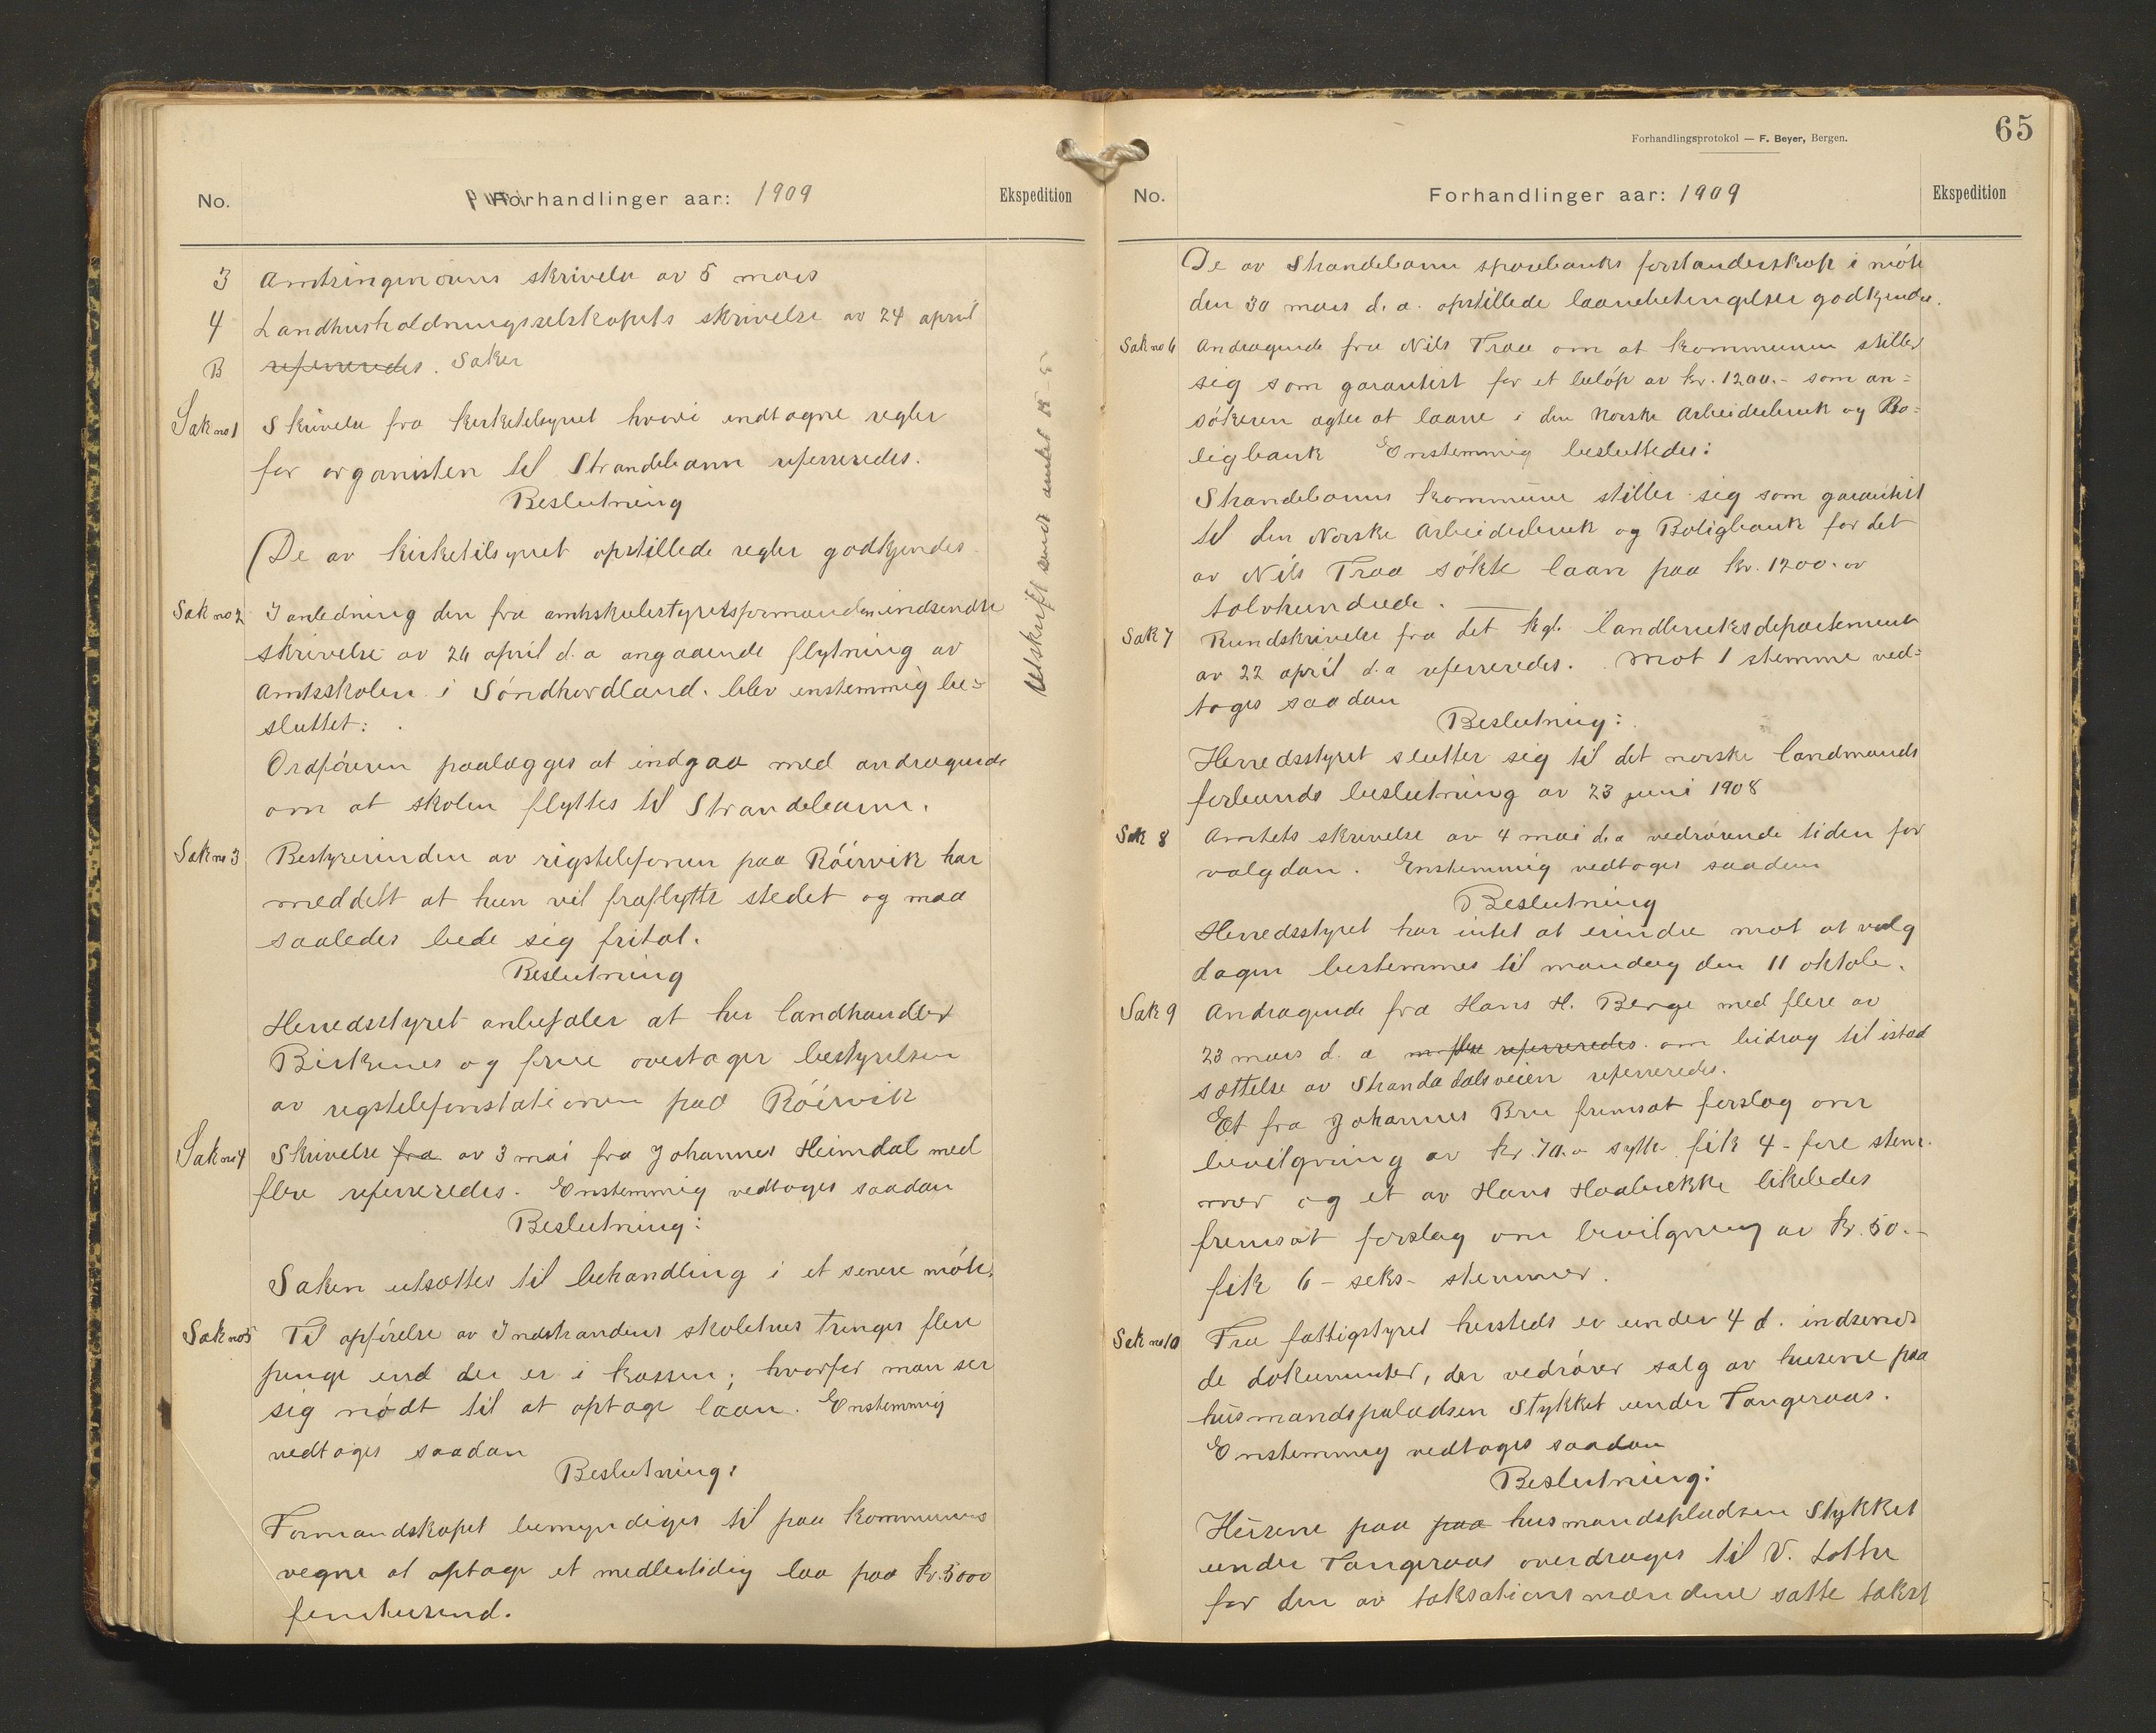 No.
Forhandlinger aar: 1909
Ekspedition
3 Amtsingeniørens skrivelse av 5 mars
4 Landhusholdningsselskapets skrivelse av 24 april
B refereredes. Saker
Sak no 1 Skrivelse fra kirketilsynet hvori indtagne regler
for organisten til Strandebarm refereredes.
Beslutning
De av kirketilsynet opstillede regler godkjendes.
Sak no 2 I anledning den fra amtskulestyretsformanden indsendte
skrivelse av 26 april d. a angaaende flytning av
Amtsskolen i Søndhordland. blev enstemmig be=
sluttet:
Ordføreren paalægges at indgaa med andragende
om at skolen flyttes til Strandebarm.
Sak no 3 Bestyrerinden av rigstelefonen paa Röirvik har
meddelt at hun vil fraflytte stedet og maa
saaledes bede sig fritat.
Beslutning
Herredsstyret anbefaler at hr landhandler
Birkenes og frue overtager bestyrelsen
av rigstelefonstationen paa Röirvik
Sak no 4 Skrivelse fra av 3 mai fra Johannes Heimdal med
flere refereredes. Enstemmig vedtoges saadan
Beslutning:
Saken utsættes til behandling i et senere møte.
Sak no 5 Til opførelse av Indstrandens skolehus trenges flere
penge end der er i kassen; hvorfor man ser
sig nødt til at optage laan. Enstemmig
vedtoges saadan
Beslutning:
Formandskapet bemyndiges til paa kommunens
vegne at optage et medlertidig laa paa kr. 5000
femtusend.
Utskrift sendt amtet 15 – 5
Forhandlingsprotokol — F. Beyer, Bergen.
65
No.
Forhandlinger aar: 1909
Ekspedition
De av Strandebarm sparebanks forstanderskap i møte
den 30 mars d. a. opstillede laanebetingelser godkjendes.
Sak no 6 Andragende fra Nils Traa om at kommunen stiller
sig som garantist for et beløp av kr. 1200.- som an=
søkeren agter at laane i den Norske Arbeiderbruk og Bo=
ligbank Enstemmig besluttedes:
Strandebarms kommune stiller sig som garantist
til den Norske Arbeiderbruk og Boligbank for det
av Nils Traa søkte laan paa kr. 1200.00
tolvhundrede.
Sak 7 Rundskrivelse fra det kgl. landbruksdepartement
av 22 april d. a refereredes. Mot 1 stemme ved=
toges saadan
Beslutning:
Herredsstyret slutter sig til det norske landmands
forbunds beslutning av 23 juni 1908
Sak 8 Amtets skrivelse av 4 mai d. a vedrørende tiden for
valgdan. Enstemmig vedtoges saadan
Beslutning
Herredsstyret har intet at erindre mot at valg
dagen bestemmes til mandag den 11 oktobe.
Sak 9 Andragende fra Hans H. Berge med flere av
23 mars d. a m flere refereredes. om bidrag til istad
sættelse av Strandadalsveien refereredes.
Et fra Johannes Bru fremsat forslag om
bevilgning av kr. 70.- sytti fik 4 - fire stem-
mer og et av Hans Haabrekke likeledes
fremsat forslag om bevilgning av kr. 50.-
fik 6 - seks - stemmer.
Sak no 10 Fra fattigstyret hersteds er under 4 d. indsend
de dokumenter, der vedrører salg av husene paa
husmandspaladsen Stykket under Tangeraas.
Enstemmig vedtoges saadan
Beslutning:
Husene paa paa husmandspladsen Stykket
under Tangeraas overdrages til V. Lothe
for den av taksationsmændene satte takst